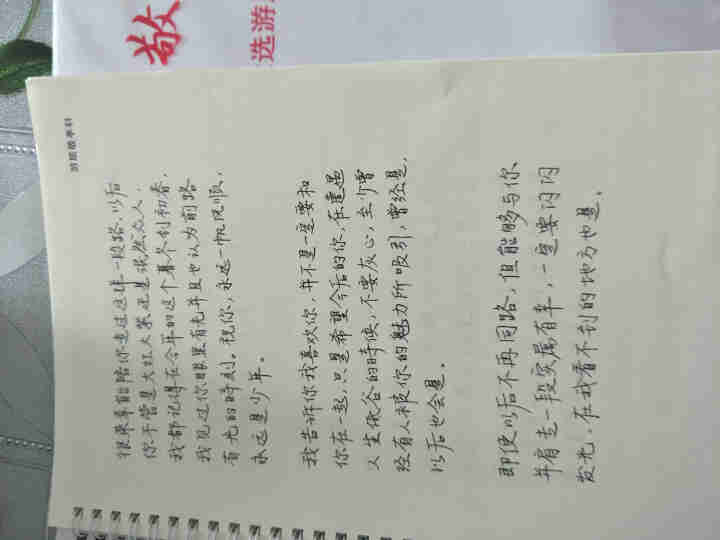 敬
选游
很荣幸能陪你走过这样一段路，以后
你不管是大红大紫还是泯然众人，
我都记得在今年的这个暮冬到初春，
我见过你眼里有光并且也认为前路
有光的时刻。祝你，永远一帆风顺，
永远是少年。
我告诉你我喜欢你，并不是一定要和
你在一起，只是希望今后的你，在遭遇
人生低谷的时候，不要灰心，至少曾
经有人被你的魅力所吸引，曾经是，
以后也会是。
即便以后不再同路，但能够与你
并肩走一段实属有幸，一定要闪闪
发光，在我看不到的地方也是。